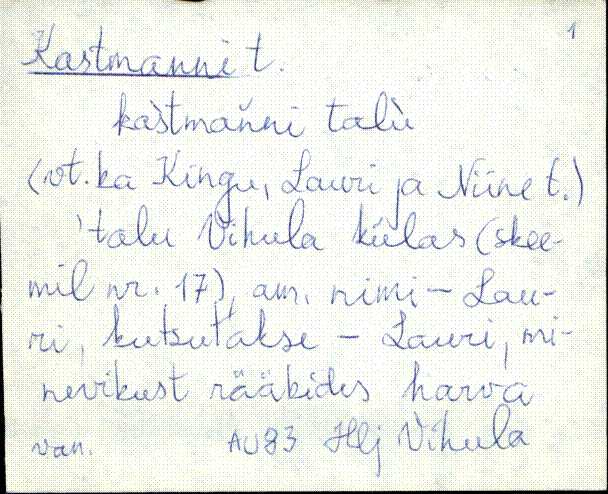 1
Kastmanni t.
kàstmańni talù
(vt. ka Kingu, Lauri ja Niine t.)
'talu Vihula külas (skee-
mil nr. 17), am. nimi – Lau-
ri, kutsutakse – Lauri, mi-
nevikust rääkides harva
van. AU83 Hlj Vihula